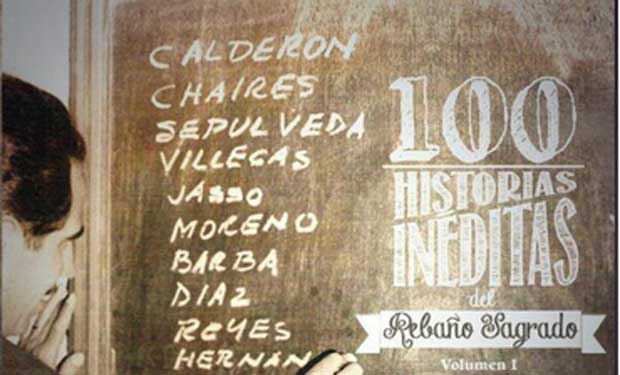 CALDERON
CHAIRES
SEPULVEDA
VILLEGAS
JASSO
MORENO
BARBA
DIAZ
REYES
HERNAN
100
HISTORIAS
INÉDITAS
del
Rebaño Sagrado
Volumen I